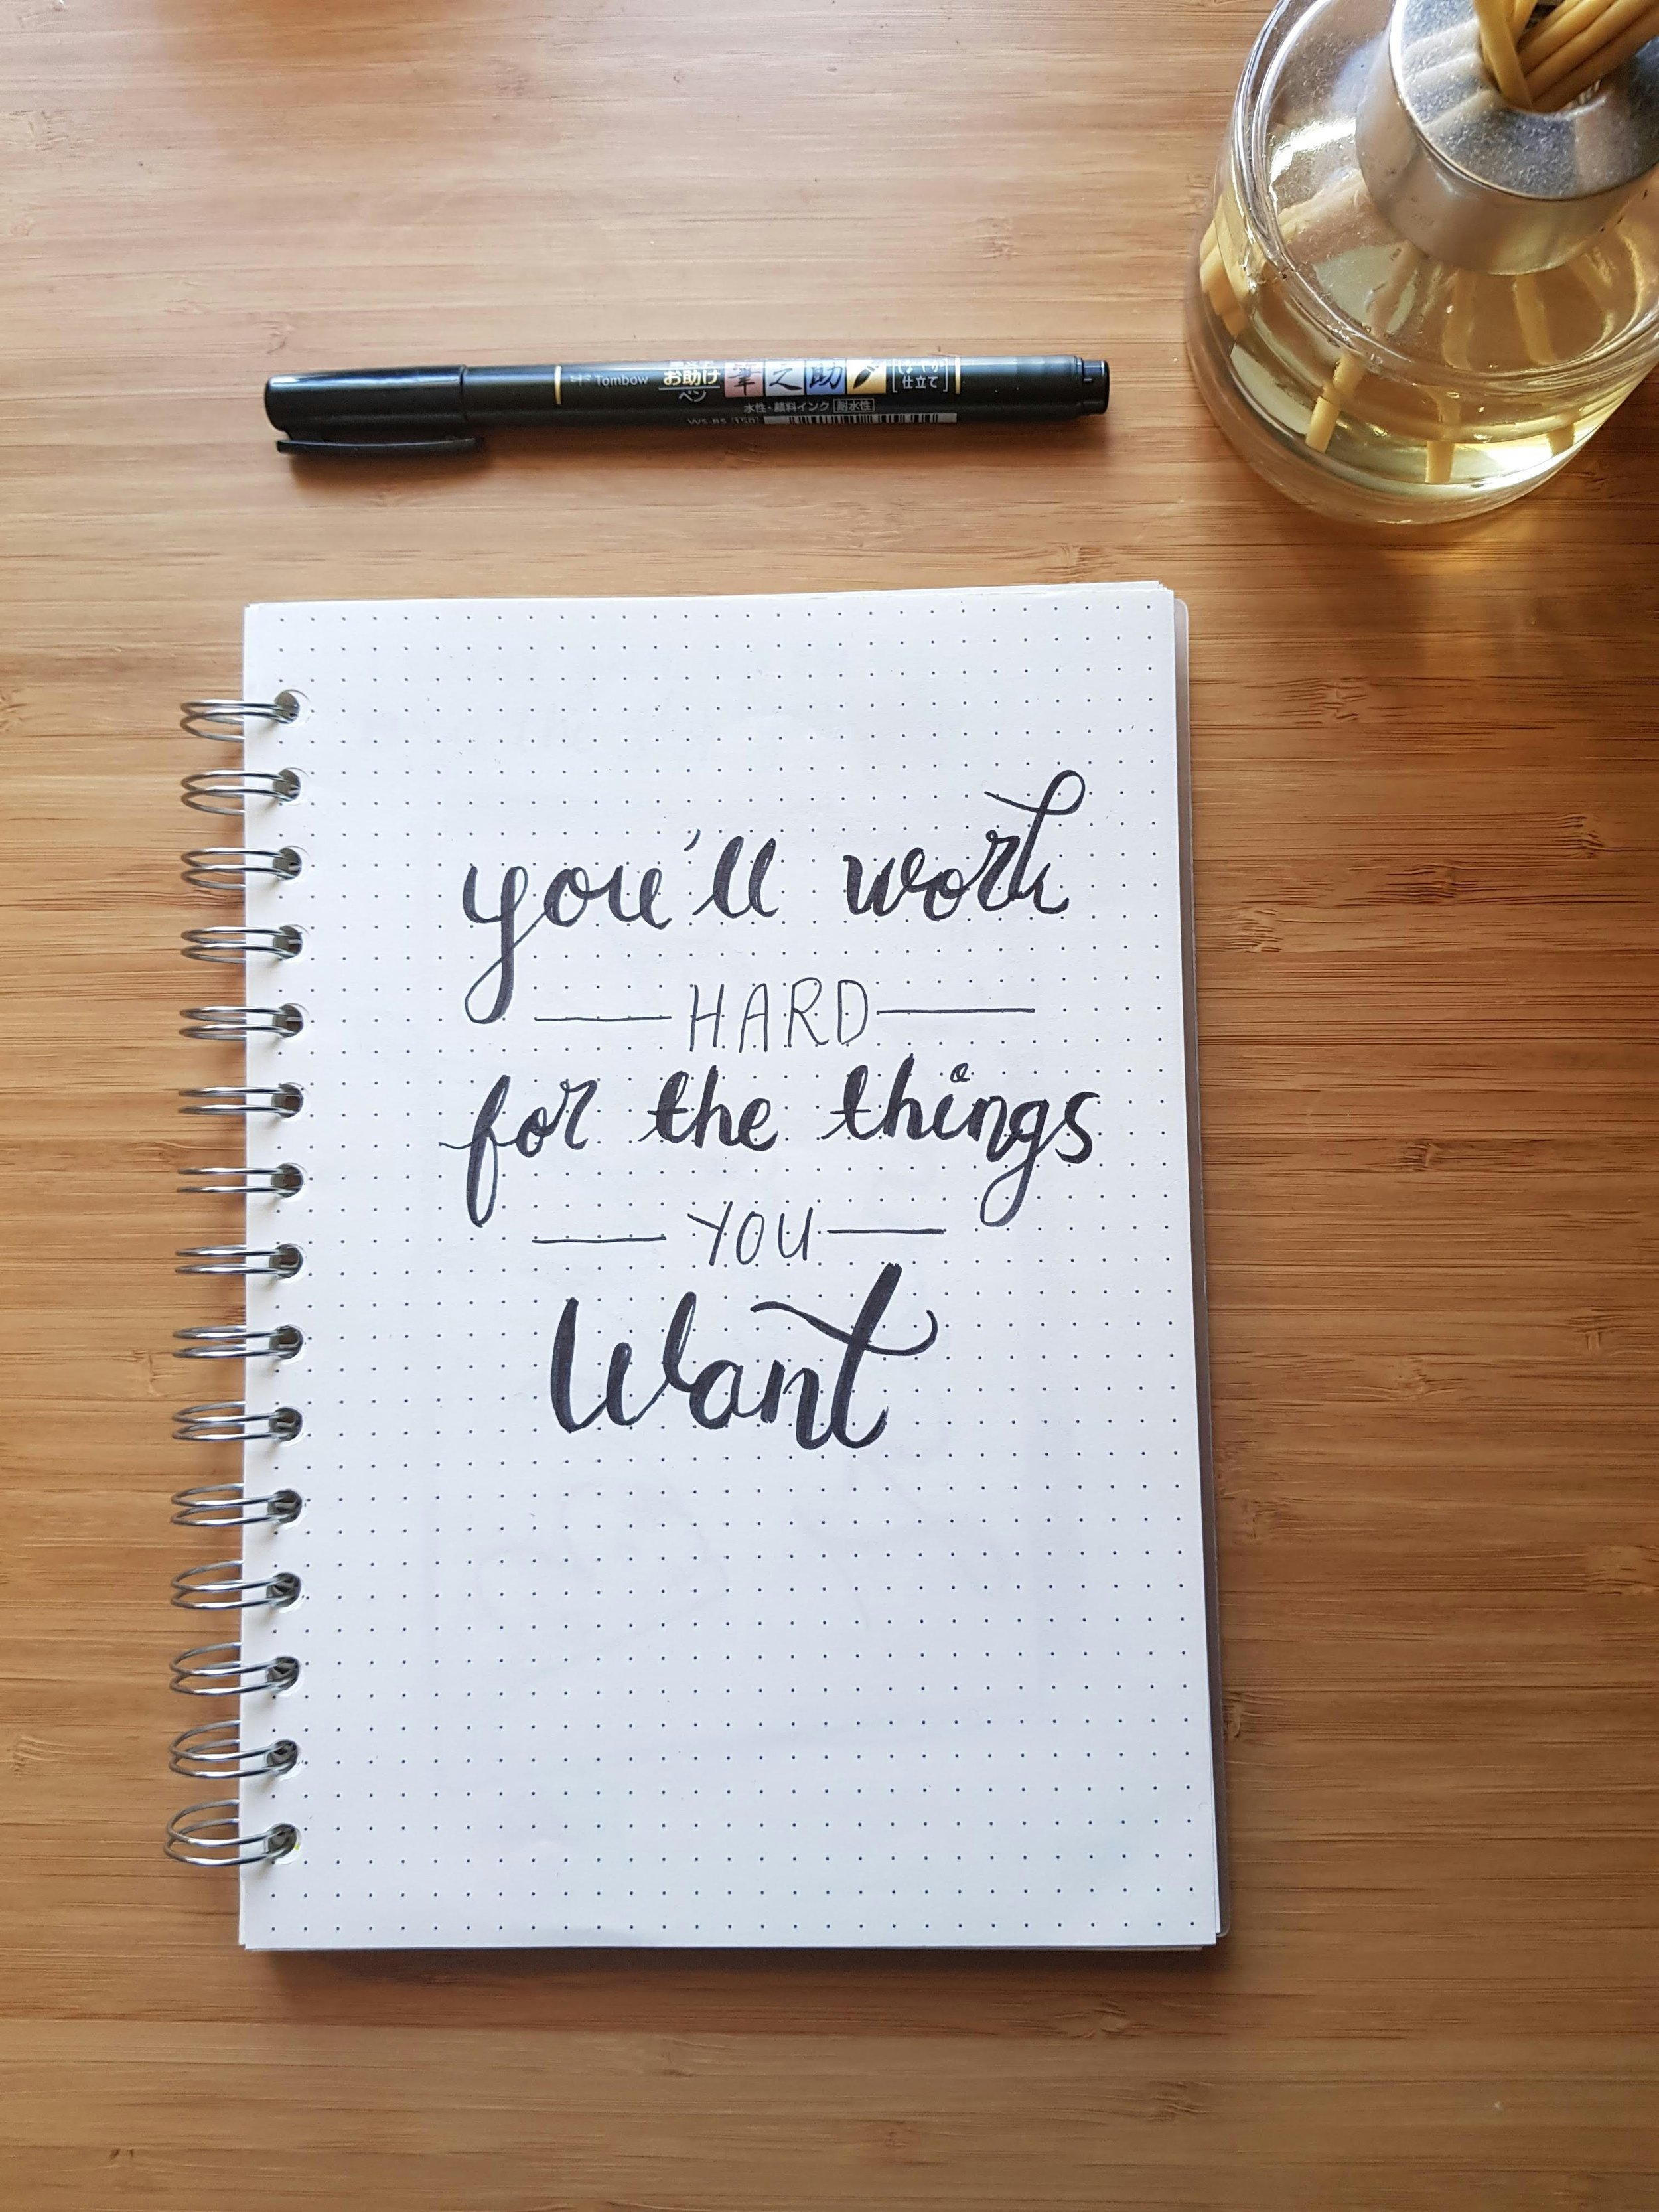 Tombow
お助け
ペン
筆之助
仕立て
水性・顔料インク 耐水性
WS-BS 150
you'll work
HARD
for the things
YOU
Want